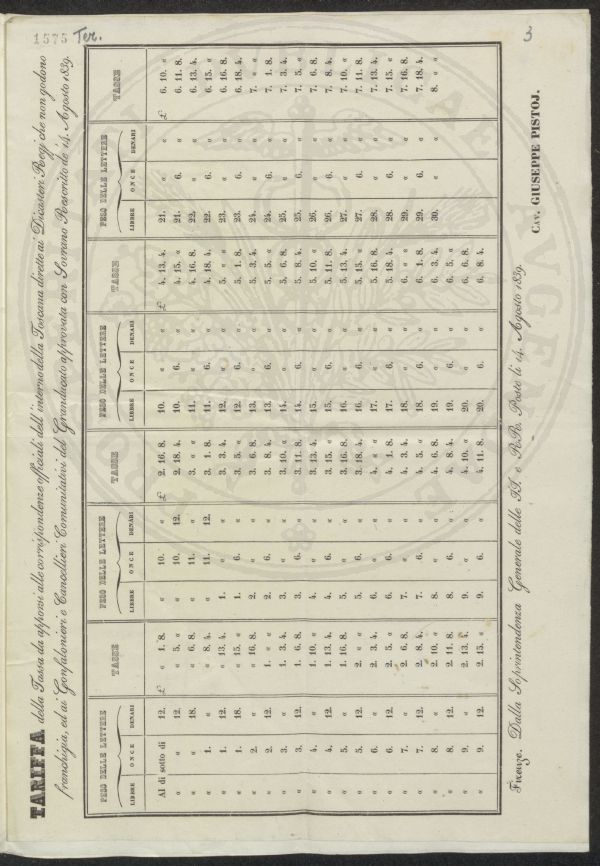 1575 Ter.
3
TARIFFA della Tassa da apporsi alle corrispondenze officiali dell'interno della Toscana dirette ai Dicasteri Regj che non godono
franchigia, ed ai Gonfalonieri e Cancellieri Comunitativi del Granducato approvata con Sovrano Rescritto de' 14. Agosto 1839.
PESO DELLE LETTERE TASSE PESO DELLE LETTERE TASSE PESO DELLE LETTERE TASSE PESO DELLE LETTERE TASSE
LIBBRE ONCE DENARI LIBBRE ONCE DENARI LIBBRE ONCE DENARI LIBBRE ONCE DENARI
Al di sotto di 12. £ « 1. 8. « 10. « £ 2. 16. 8. 10. « « £ 4. 13. 4. 21. « « £ 6. 10. «
« « 12. « 5. « « 10. 12. 2. 18. 4. 10. 6. « 4. 15. « 21. 6. « 6. 11. 8.
« « 18. « 6. 8. « 11. « 3. « « 11. « « 4. 16. 8. 22. « « 6. 13. 4.
« 1. « « 8. 4. « 11. 12. 3. 1. 8. 11. 6. « 4. 18. 4. 22. 6. « 6. 15. «
« 1. 12. « 13. 4. 1. « « 3. 3. 4. 12. « « 5. « « 23. « « 6. 16. 8.
« 1. 18. « 15. « 1. 6. « 3. 5. « 12. 6. « 5. 1. 8. 23. 6. « 6. 18. 4.
« 2. « « 16. 8. 2. « « 3. 6. 8. 13. « « 5. 3. 4. 24. « « 7. « «
« 2. 12. 1. « « 2. 6. « 3. 8. 4. 13. 6. « 5. 5. « 24. 6. « 7. 1. 8.
« 3. « 1. 3. 4. 3. « « 3. 10. « 14. « « 5. 6. 8. 25. « « 7. 3. 4.
« 3. 12. 1. 6. 8. 3. 6. « 3. 11. 8. 14. 6. « 5. 8. 4. 25. 6. « 7. 5. «
« 4. « 1. 10. « 4. « « 3. 13. 4. 15. « « 5. 10. « 26. « « 7. 6. 8.
« 4. 12. 1. 13. 4. 4. 6. « 3. 15. « 15. 6. « 5. 11. 8. 26. 6. « 7. 8. 4.
« 5. « 1. 16. 8. 5. « « 3. 16. 8. 16. « « 5. 13. 4. 27. « « 7. 10. «
« 5. 12. 2. « « 5. 6. « 3. 18. 4. 16. 6. « 5. 15. « 27. 6. « 7. 11. 8.
« 6. « 2. 3. 4. 6. « « 4. « « 17. « « 5. 16. 8. 28. « « 7. 13. 4.
« 6. 12. 2. 5. « 6. 6. « 4. 1. 8. 17. 6. « 5. 18. 4. 28. 6. « 7. 15. «
« 7. « 2. 6. 8. 7. « « 4. 3. 4. 18. « « 6. « « 29. « « 7. 16. 8.
« 7. 12. 2. 8. 4. 7. 6. « 4. 5. « 18. 6. « 6. 1. 8. 29. 6. « 7. 18. 4.
« 8. « 2. 10. « 8. « « 4. 6. 8. 19. « « 6. 3. 4. 30. « « 8. « «
« 8. 12. 2. 11. 8. 8. 6. « 4. 8. 4. 19. 6. « 6. 5. «
« 9. « 2. 13. 4. 9. « « 4. 10. « 20. « « 6. 6. 8.
« 9. 12. 2. 15. « 9. 6. « 4. 11. 8. 20. 6. « 6. 8. 4.
Firenze. Dalla Soprintendenza Generale delle II. e RR. Poste li 14. Agosto 1839.
CAV. GIUSEPPE PISTOJ.